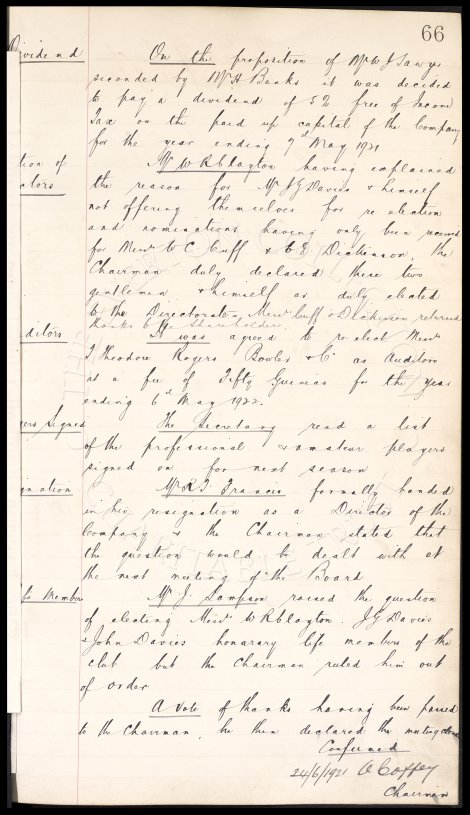 66
Dividend
On the proposition of Mr W J Sawyer
seconded by Mr A Banks it was decided
to pay a dividend of 5% free of Income
Tax on the paid up capital of the Company
for the year ending 7th May 1921
tion of
ctors
Mr W R Clayton having explained
the reason for Mr J G Davies & himself
not offering themselves for re election
and nominations having only been received
for Messrs W C Cuff & C E Dickinson, the
Chairman duly declared these two
gentlemen & himself as duly elected
to the Directorate, Messrs Cuff & Dickinson returned
thanks to the shareholders.
ditors
It was agreed to re-elect Messrs
T Theodore Rogers Bowler & Co as Auditors
at a fee of Fifty Guineas for the year
ending 6th May 1922.
yers Signed
The Secretary read a list
of the professional & amateur players
signed on for next season
gnation
Mr R T Francis formally handed
in his resignation as a Director of the
Company & the Chairman stated that
the question would be dealt with at
the next meeting of the Board
fe Members
Mr J. Sampson raised the question
of electing Messrs W R Clayton. J G Davies
& John Davies honorary life members of the
club but the Chairman ruled him out
of order
A Vote of thanks having been passed
to the Chairman, he then declared the meeting closed
Confirmed
24/6/1921 A Coffey
Chairman